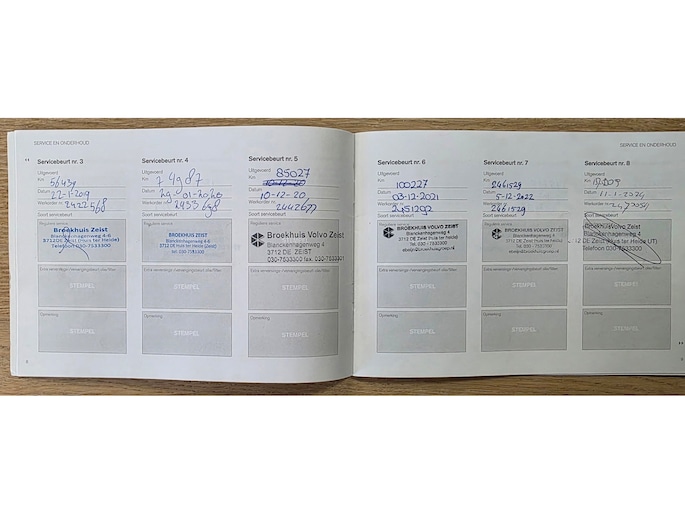 SERVICE EN ONDERHOUD
Servicebeurt nr. 3
Uitgevoerd
Km
Datum 22-1-2019
Werkorder nr. 2422568
Soort servicebeurt
Reguliere service
Broekhuis Zeist
Blanckenhagenweg 4-6
3712DE Zeist (Huis ter Heide)
Telefoon 030-7533300
Extra verversings-/vervangingsbeurt olie/filter
STEMPEL
Opmerking
STEMPEL
Servicebeurt nr. 4
Uitgevoerd
Km 74987
Datum 29-01-2020
Werkorder nr. 2433698
Soort servicebeurt
Reguliere service
BROEKHUIS ZEIST
Blanckenhagenweg 4-6
3712 DE Zeist (Huis ter Heide)
tel. 030-7533300
Extra verversings-/vervangingsbeurt olie/filter
STEMPEL
Opmerking
STEMPEL
Servicebeurt nr. 5
Uitgevoerd
85027
Km
Datum 10-12-20
Werkorder nr. 2442677
Soort servicebeurt
Reguliere service
Broekhuis Volvo Zeist
Blanckenhagenweg 4
3712 DE ZEIST
030-7533300 fax. 030-7533301
Extra verversings-/vervangingsbeurt olie/filter
STEMPEL
Opmerking
STEMPEL
SERVICE EN ONDERHOUD
Servicebeurt nr. 6
Uitgevoerd
Km 100227
Datum 03-12-2021
Werkorder nr. 2451202
Soort servicebeurt
Reguliere service
BROEKHUIS VOLVO ZEIST
Blanckenhagenweg 4
3712 DE Zeist (Huis ter Heide)
Tel. 030 - 7533300
Extra verversings-/vervangingsbeurt olie/filter
STEMPEL
Opmerking
STEMPEL
Servicebeurt nr. 7
Uitgevoerd
Km 2461529
Datum 5-12-2022
Werkorder nr. 2461529
Soort servicebeurt
Reguliere service
BROEKHUIS VOLVO ZEIST
Blanckenhagenweg 4
3712 DE Zeist (Huis ter Heide)
Tel. 030 - 7533300
Extra verversings-/vervangingsbeurt olie/filter
STEMPEL
Opmerking
STEMPEL
Servicebeurt nr. 8
Uitgevoerd
Km
Datum 11-1-2024
Werkorder nr.
Soort servicebeurt
Broekhuis Volvo Zeist
Blanckenhagenweg 4
3712 DE Zeist (Huis ter Heide UT)
Telefoon 030-7533300
Extra verversings-/vervangingsbeurt olie/filter
STEMPEL
Opmerking
STEMPEL